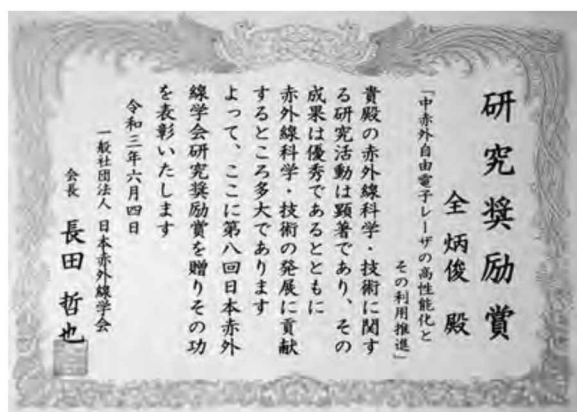 研究奨励賞
全炳俊 殿
「中赤外自由電子レーザの高性能化と
その利用推進」
貴殿の赤外線科学・技術に関す
る研究活動は顕著であり、その
成果は優秀であるとともに
赤外線科学・技術の発展に貢献
するところ多大であります
よって、ここに第八回日本赤外
線学会研究奨励賞を贈りその功
を表彰いたします
令和三年六月四日
一般社団法人 日本赤外線学会
会長 長田 哲也